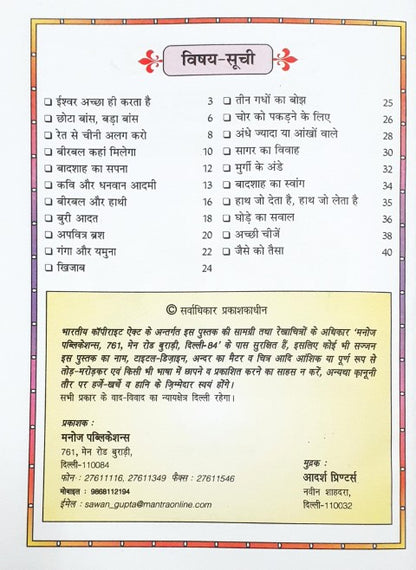 विषय-सूची
❑ ईश्वर अच्छा ही करता है 3
❑ छोटा बांस, बड़ा बांस 6
❑ रेत से चीनी अलग करो 8
❑ बीरबल कहां मिलेगा 10
❑ बादशाह का सपना 12
❑ कवि और धनवान आदमी 13
❑ बीरबल और हाथी 16
❑ बुरी आदत 18
❑ अपवित्र ब्रश 20
❑ गंगा और यमुना 22
❑ खिजाब 24
❑ तीन गधों का बोझ 25
❑ चोर को पकड़ने के लिए 26
❑ अंधे ज्यादा या आंखों वाले 28
❑ सागर का विवाह 30
❑ मुर्गी के अंडे 32
❑ बादशाह का स्वांग 34
❑ हाथ जो देता है, हाथ जो लेता है 35
❑ घोड़े का सवाल 36
❑ अच्छी चीजें 38
❑ जैसे को तैसा 40
© सर्वाधिकार प्रकाशकाधीन
भारतीय कॉपीराइट ऐक्ट के अन्तर्गत इस पुस्तक की सामग्री तथा रेखाचित्रों के अधिकार 'मनोज
पब्लिकेशन्स, 761, मेन रोड बुराड़ी, दिल्ली-84' के पास सुरक्षित हैं, इसलिए कोई भी सज्जन
इस पुस्तक का नाम, टाइटल-डिज़ाइन, अन्दर का मैटर व चित्र आदि आंशिक या पूर्ण रूप से
तोड़-मरोड़कर एवं किसी भी भाषा में छापने व प्रकाशित करने का साहस न करें, अन्यथा कानूनी
तौर पर हर्जे-खर्चे व हानि के ज़िम्मेदार स्वयं होंगे।
सभी प्रकार के वाद-विवाद का न्यायक्षेत्र दिल्ली रहेगा।
प्रकाशक :
मनोज पब्लिकेशन्स
761, मेन रोड बुराड़ी,
दिल्ली-110084
फोन : 27611116, 27611349 फैक्स : 27611546
मोबाइल : 9868112194
ईमेल : sawan_gupta@mantraonline.com
मुद्रक :
आदर्श प्रिण्टर्स
नवीन शाहदरा,
दिल्ली-110032